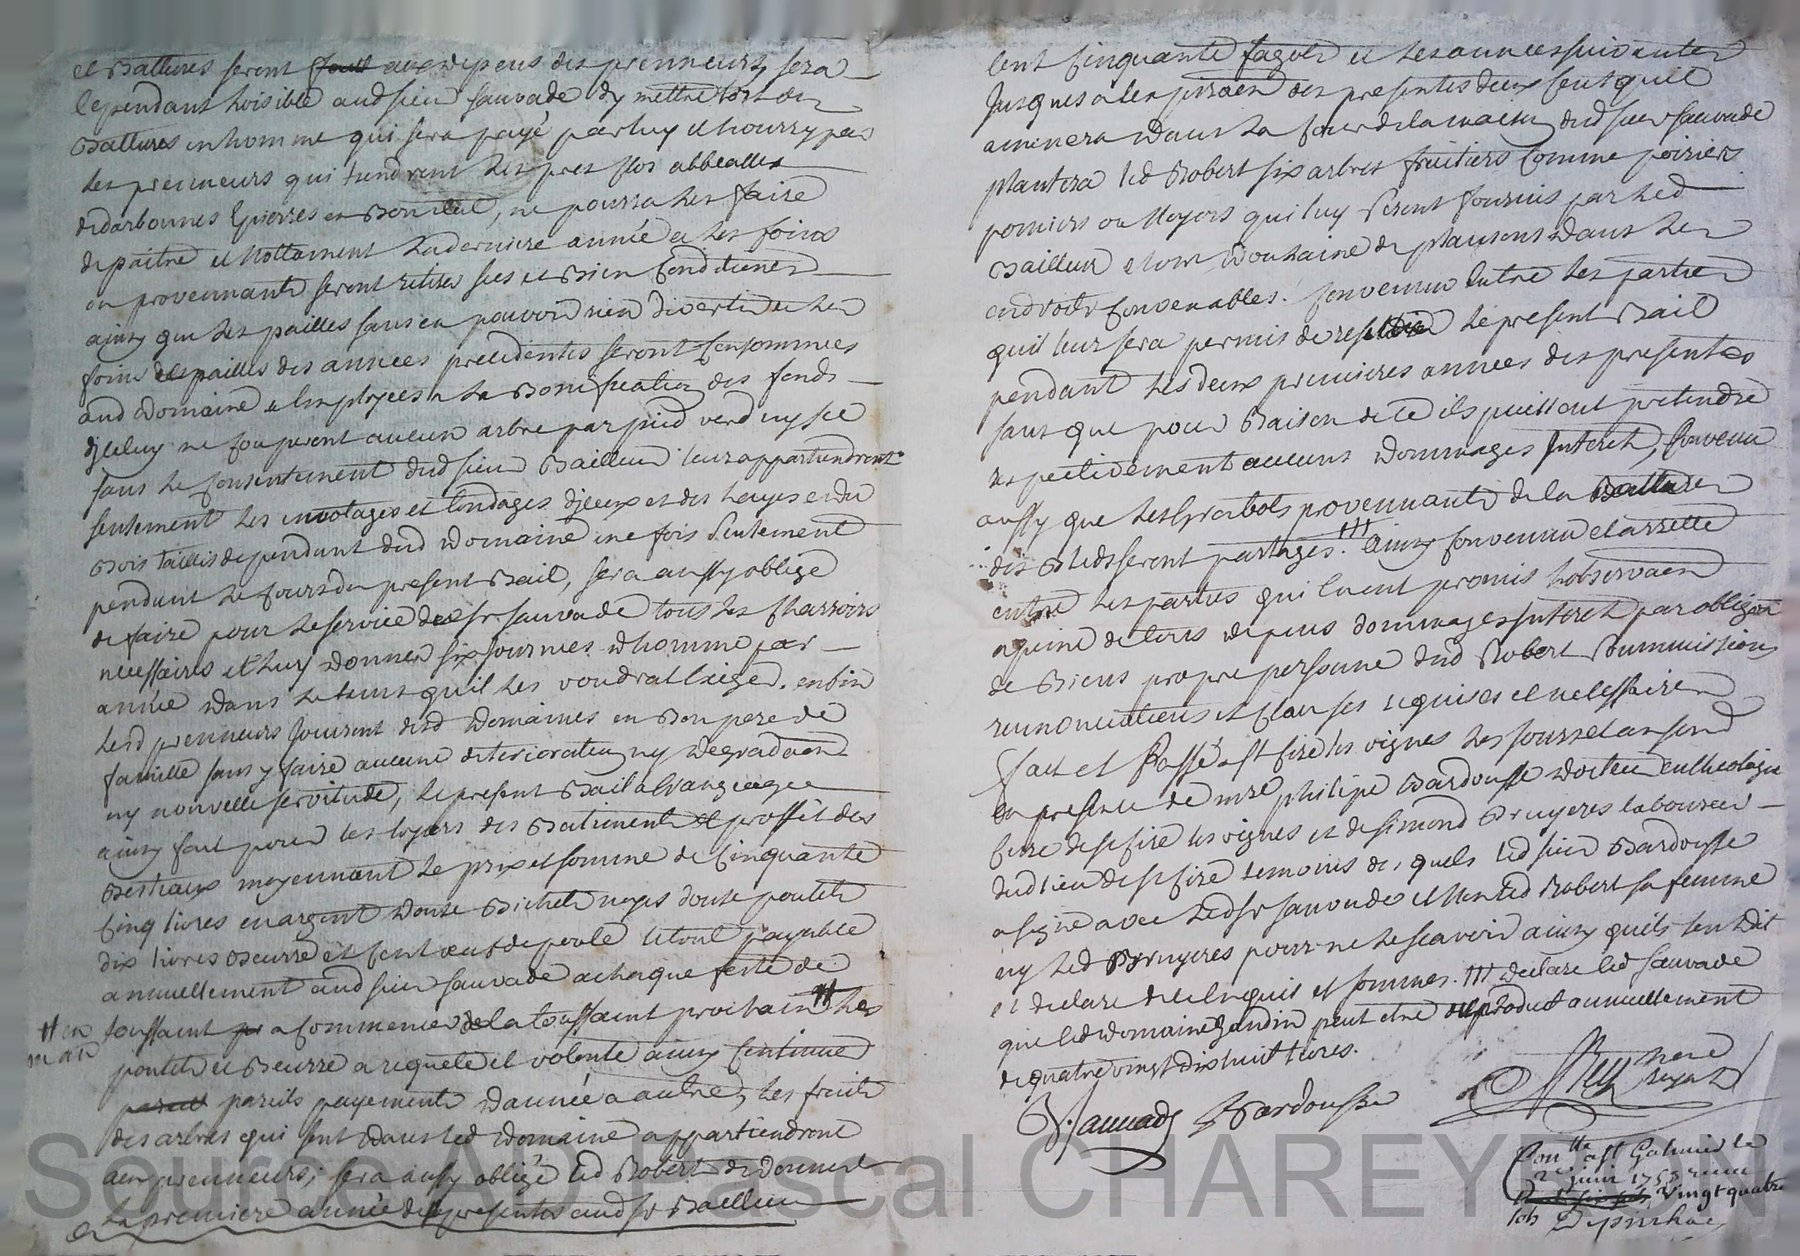 et Battures seront aux depens des prenneurs, sera
cependant loisible aud sieur sauvade dy mettre lors des
Battures un homme qui sera payé par luy et nourry par
les prenneurs qui tiendront les prés
de paitre et nottament la derniere année et les foins
en provennants seront retirés secs et Bien Conditionés
ainsy que les pailles sans en pouvoir rien divertir et les
foins et pailles des années precedentes seront Consommées
aud Domaine et Employées a la Bonification des fonds
d'jceluy ne Couperont aucun arbre par pied verd ny sec
sans le Consentement dud sieur Bailleur leur appartiendront
seulement les emotages et tondages d'jceux et des hayes et du
Bois taillis dependant dud Domaine une fois seulement
pendant le Cours du present Bail, sera aussy obligé
de faire pour le service du sr sauvade tous les Charrois
necessaires et luy Donner six journées d'homme par
année Dans le tems quil les voudrat Exiger. enfin
lesd prenneurs Jouiront dud Domaines en Bon pere de
famille sans y faire aucune deterioration ny Degradaon
ny nouvelle servitude, le present Bail a
ainsy fait pour les loyers des Batiments et proffit des
Bestiaux moyennant le prix et somme de Cinquante
Cinq livres en argent Douze Bichets noyes douze poulets
dix livres Beurre et Cent œufs de poule le tout payable
annuellement aud sieur sauvade a chaque feste de
toussaint a Commencer de la toussaint prochain # les
# en
poulets et Beurre a requete et volonté ainsy Continuer
pareils payements D'année a autre, les fruits
des arbres qui sont Dans led Domaine appartiendront
aux prenneurs; sera aussy obligé led Robert de Donner
la premiere année des presentes aud sr Bailleur
Cent Cinquante fagots et les années suivantes
Jusques a des presentes deux Cent quil
amenera Dans la Cour de la maison dud sieur sauvade
plantera led Robert six arbres fruitiers Comme poiriers
pomiers ou Noyers qui luy seront fournis par led
Bailleur et une Douzaine de plansons Dans les
endroits Convenables. Convenu Entre les parties
quil leur sera permis de le present Bail
pendant les deux premieres années des presentes
sans que pour Raison de ce ils puissent pretendre
respectivement aucuns Dommages Interets, Convenu
aussy que les provennants de la Batture
des Bleds seront partagés. ainsy Convenu et arretté
entre les parties qui l'auent promis observaon
a peine de tous depens dommages Interets par obligaon
de Biens propre personne dud Robert summissions
renonciations et Clauses requises et necessaires
fait et Passé a st Cire les vignes les jour et an
En presence de mre philipe Bardousse Docteur en theologie
Curé de st Cire les vignes et de simond Bruyeres laboureur
dud lieu de st Cire temoins desquels led sieur Bardousse
a signé avec led sr sauvade et non led Robert sa femme
ny led Bruyeres pour ne le scavoir ainsy quils l'ont Dit
et declaré de ce Enquis et sommés. declare led sauvade
que led Domaine peut etre de produit annuellement
de quatre vingt dix huit livres.
Sauvade Bardousse
nore
royal
Conlle a st Galmier le
2 juin 1753 reçu
vingt quatre
sols
Source AD Pascal CHAREYRON